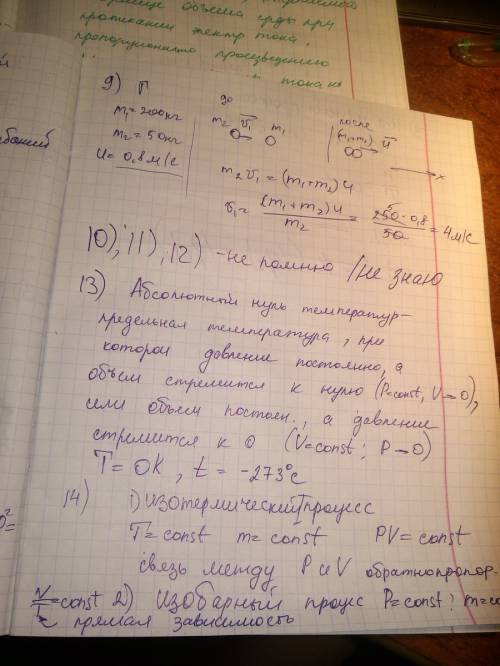 объема среды при
протекании электр тока.
пропорционально произведению
тока на
9) Г
m₁=200кг
m₂=50кг
U=0,8м/с
до
m₂ v̅₁ m₁
после
(m₁+m₂) u̅
x
m₂v₁=(m₁+m₂)u
v₁= (m₁+m₂)u / m₂ = 250·0,8 / 50 = 4м/с
5
10), 11), 12) -не помню /не знаю
13) Абсолютный нуль температур-
предельная температура, при
которой давление постоянно, а
объем стремится к нулю (P=const, V→0),
если объем постоян., а давление
стремится к 0 (V=const; P→0)
T=0К, t=-273°c
14) 1) изотермический процесс
T=const m=const PV=const
связь между P и V обратнопропор-
V/T=const 2) изобарный процес P=const; m=co
прямая зависимость